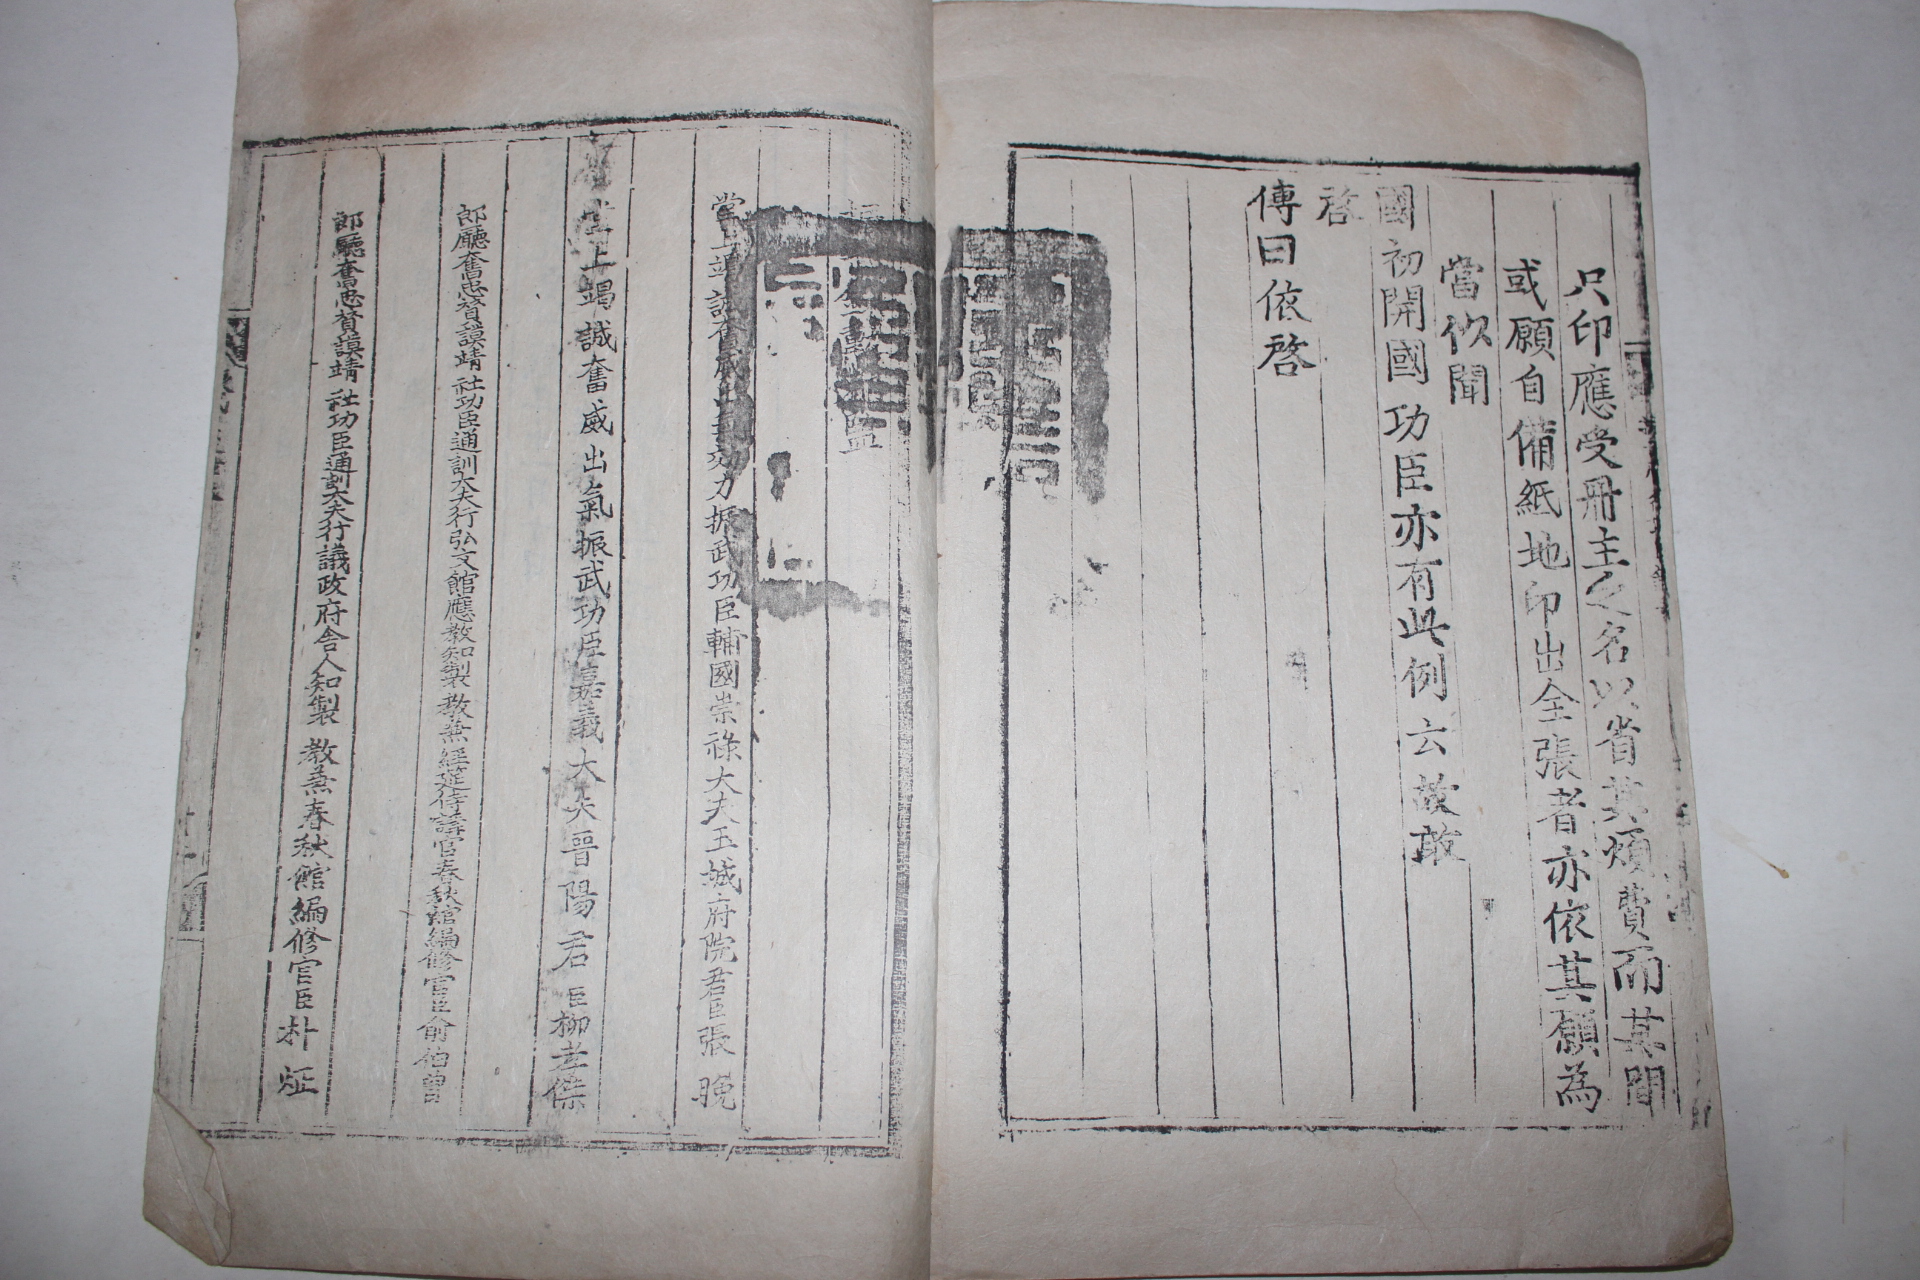 只印應受冊主之名以省其煩費而其間
或願自備紙地印出全張者亦依其願為
當伏聞
國初開國功臣亦有此例云故敢
啓
傳曰依啓
振武勳都監
堂上竭誠奮威出氣効力振武功臣輔國崇祿大夫玉城府院君臣張晚
堂上竭誠奮威出氣振武功臣嘉義大夫晉陽君臣柳孝傑
郎廳奮忠贊謨靖社功臣通訓大夫行弘文館應教知製教兼經筵侍講官春秋館編修官臣俞伯曾
郎廳奮忠贊謨靖社功臣通訓大夫行議政府舍人知製教兼春秋館編修官臣朴炡